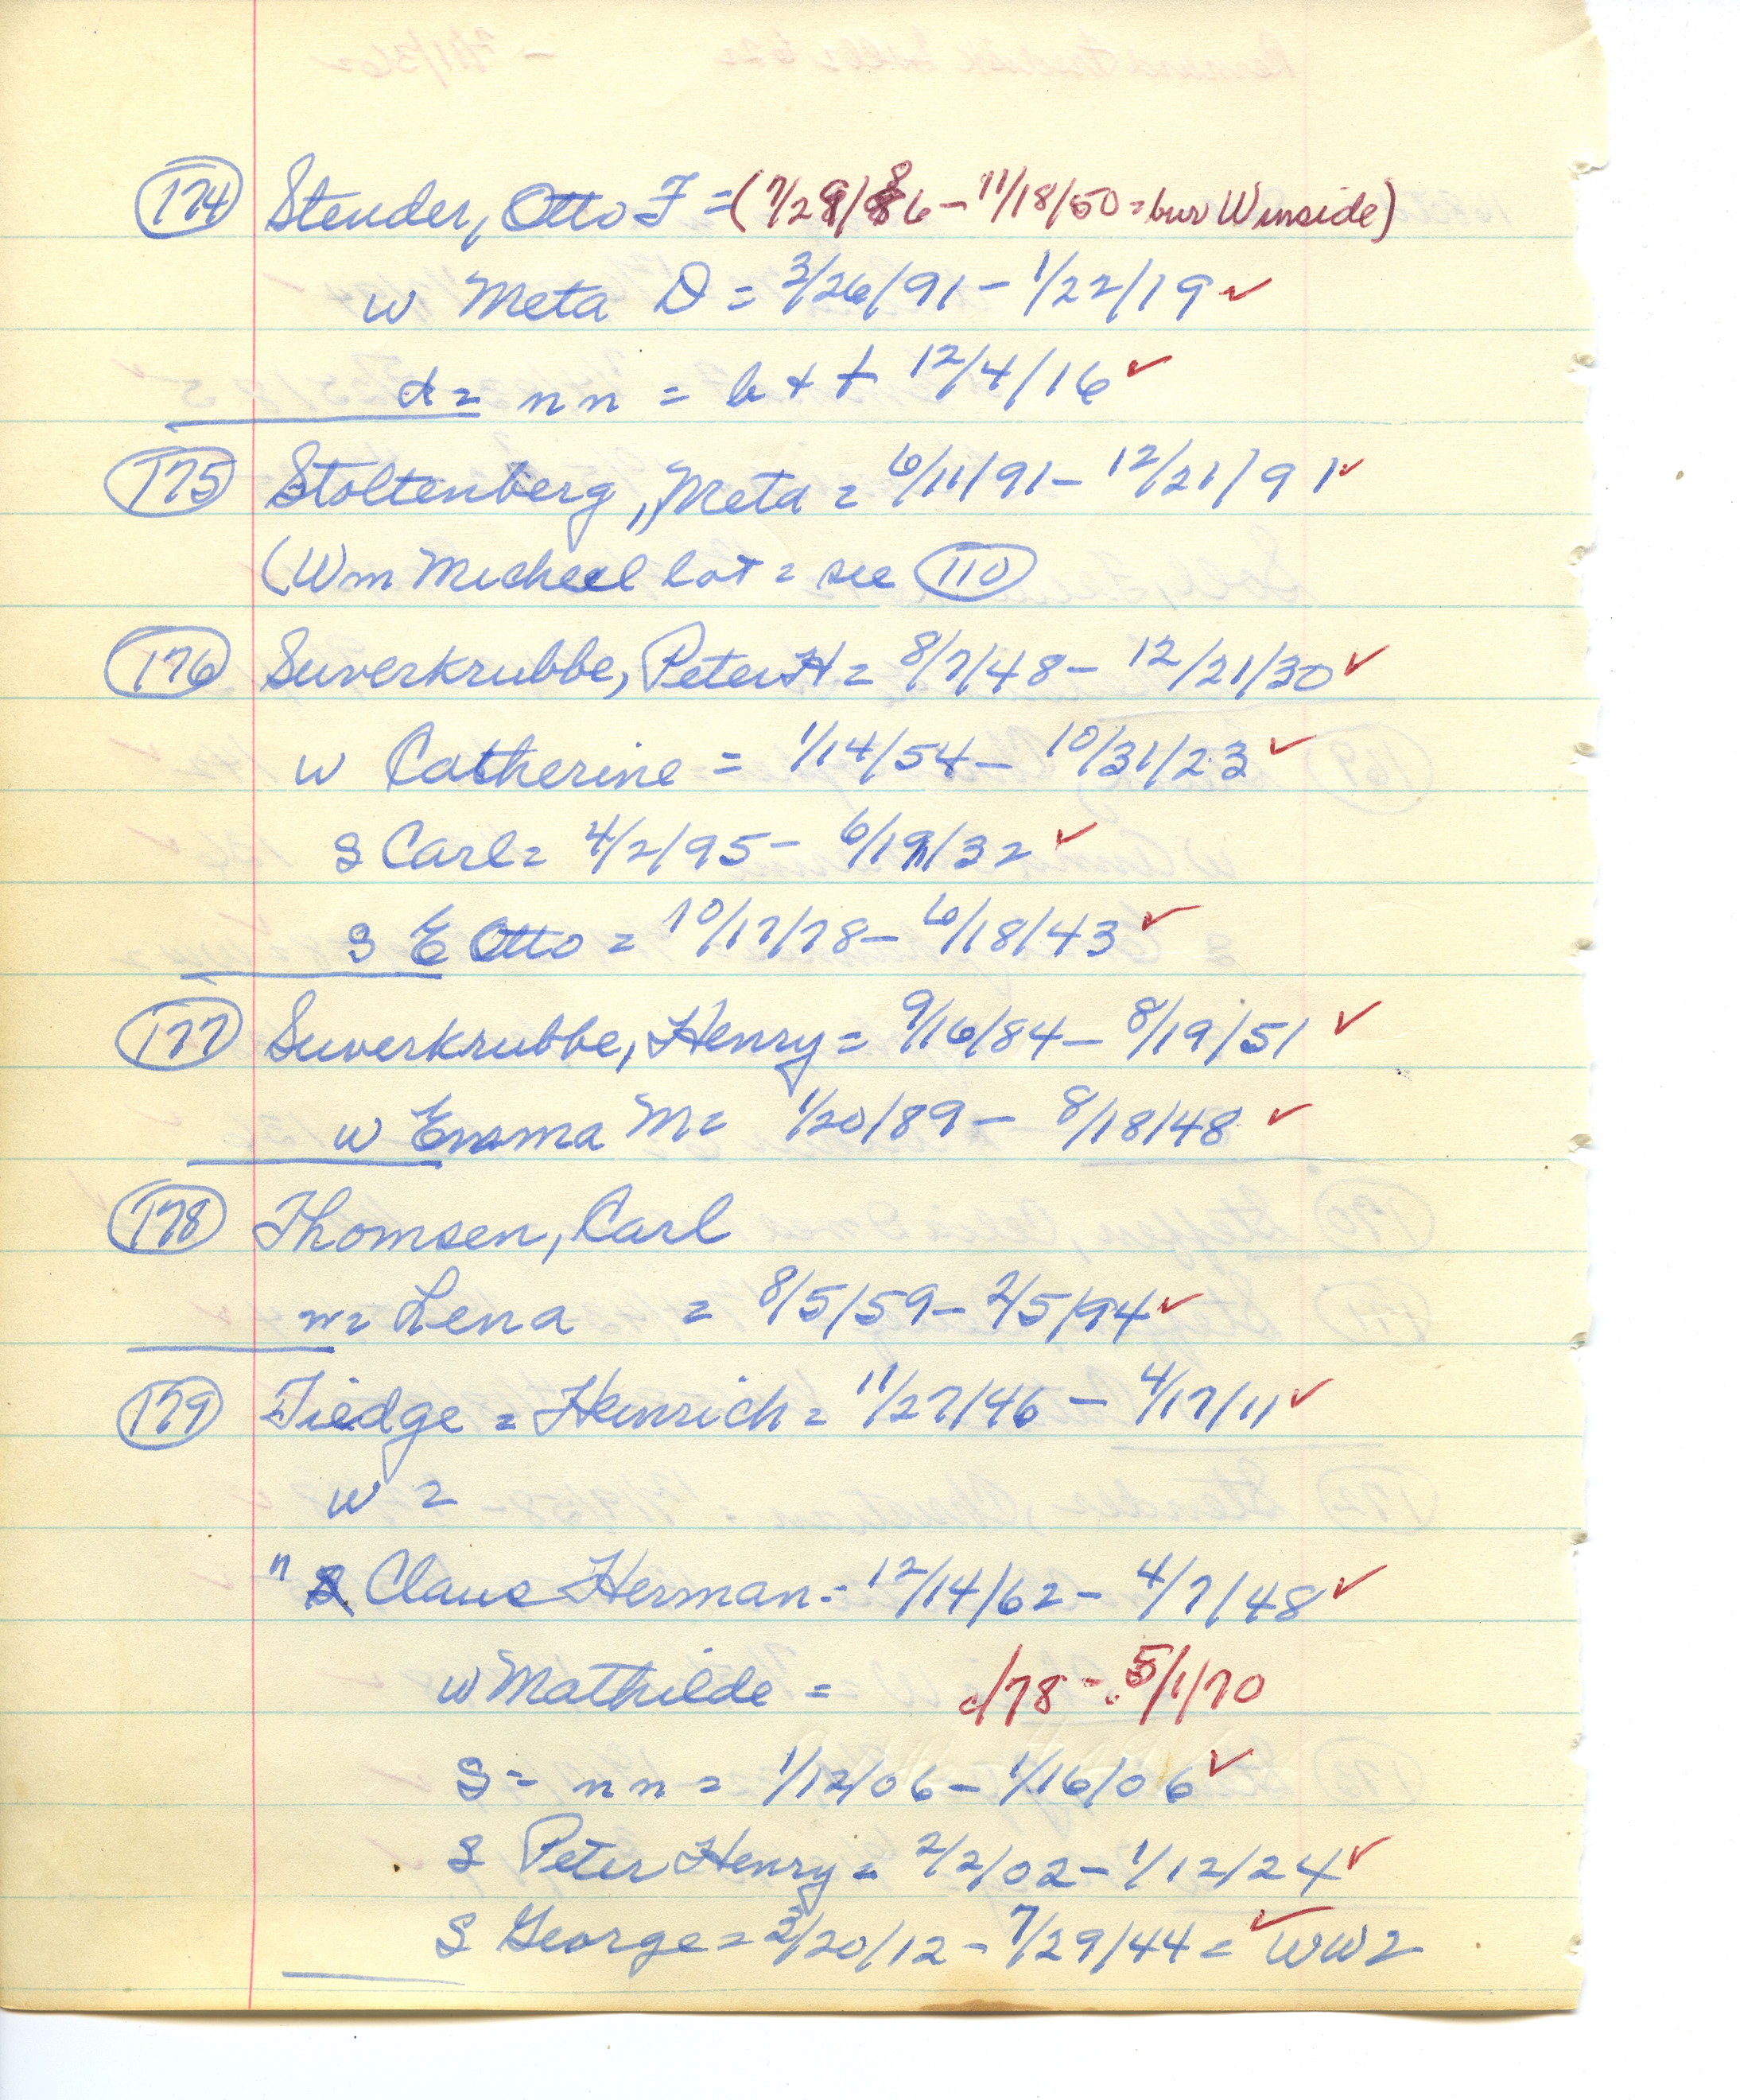 174 Stender, Otto F = (7/29/86 - 11/18/50 = bur Winside)
w Meta D = 3/26/91 - 1/22/19 ✓
d = nn = b + † 12/4/16 ✓
175 Stoltenberg, Meta = 6/11/91 - 12/21/91 ✓
(Wm Micheel lot = see 110
176 Suverkrubbe, Peter H = 8/7/48 - 12/21/30 ✓
w Catherine = 1/14/54 - 10/31/23 ✓
S Carl = 4/2/95 - 6/19/32 ✓
S E Otto = 10/17/78 - 6/18/43 ✓
177 Suverkrubbe, Henry = 9/16/84 - 8/19/51 ✓
w Emma M = 1/20/89 - 8/18/48 ✓
178 Thomsen, Carl
w = Lena = 8/5/59 - 2/5/94 ✓
179 Tiedge = Heinrich = 11/27/46 - 4/17/11 ✓
w =
" Claus Herman = 12/14/62 - 4/7/48 ✓
w Mathilde = /78 - 5/1/70
S = nn = 1/12/06 - 1/16/06 ✓
S Peter Henry = 2/2/02 - 1/12/24 ✓
S George = 3/20/12 - 7/29/44 = ✓ WW2